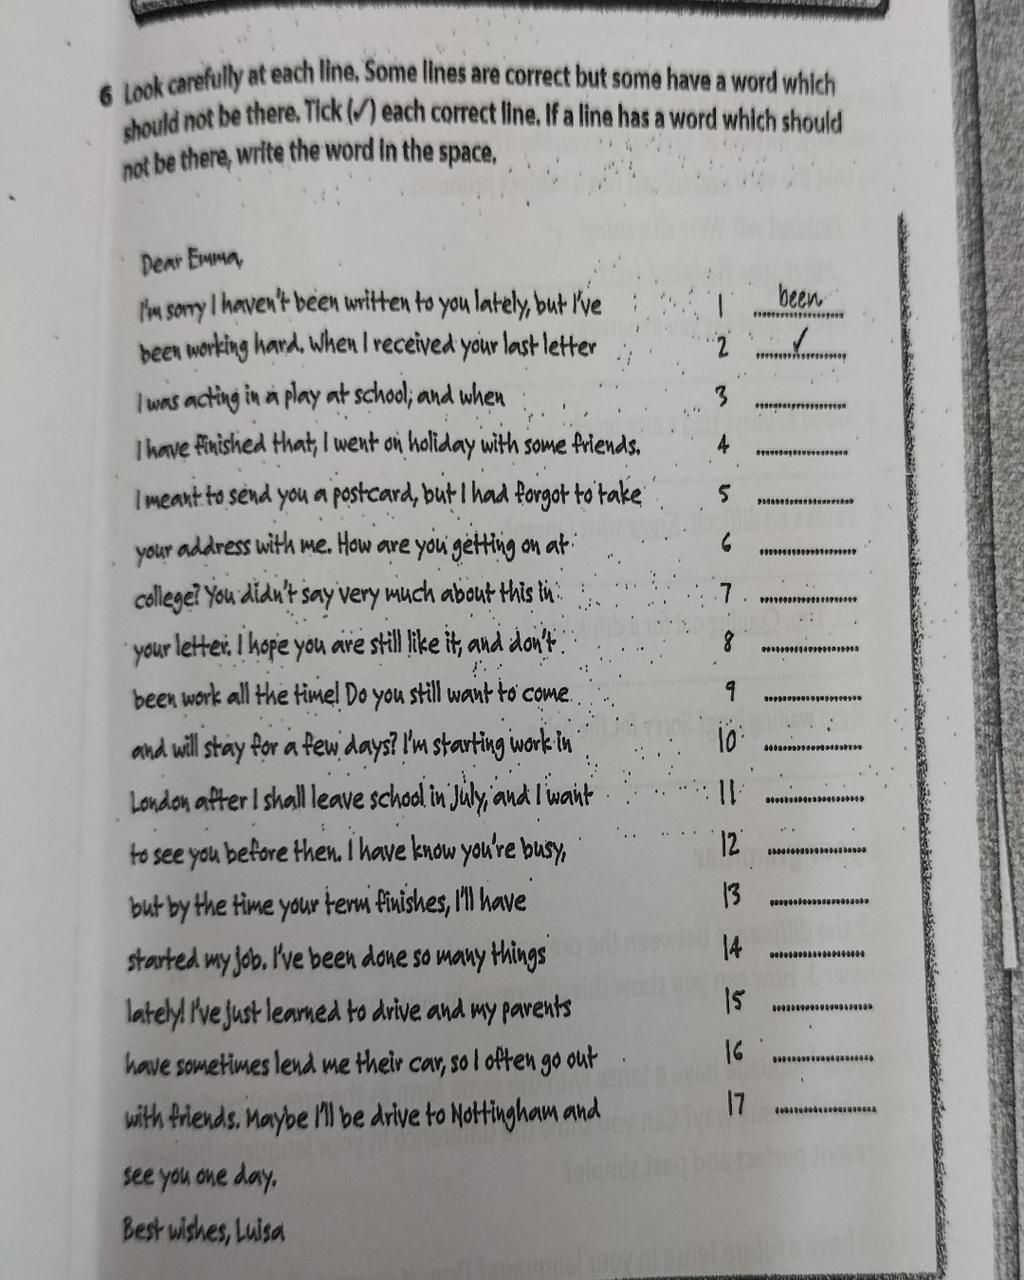 6 Look carefully at each line. Some lines are correct but some have a word which
should not be there. Tick (✓) each correct line. If a line has a word which should
not be there, write the word in the space.
Dear Emma,
I'm sorry I haven't been written to you lately, but I've 1 been
been working hard. When I received your last letter 2 ✓
I was acting in a play at school, and when 3
I have finished that, I went on holiday with some friends. 4
I meant to send you a postcard, but I had forgot to take 5
your address with me. How are you getting on at 6
college? You didn't say very much about this in 7
your letter. I hope you are still like it, and don't 8
been work all the time! Do you still want to come 9
and will stay for a few days? I'm starting work in 10
London after I shall leave school in July, and I want 11
to see you before then. I have know you're busy, 12
but by the time your term finishes, I'll have 13
started my job. I've been done so many things 14
lately! I've just learned to drive and my parents 15
have sometimes lend me their car, so I often go out 16
with friends. Maybe I'll be drive to Nottingham and 17
see you one day.
Best wishes, Luisa